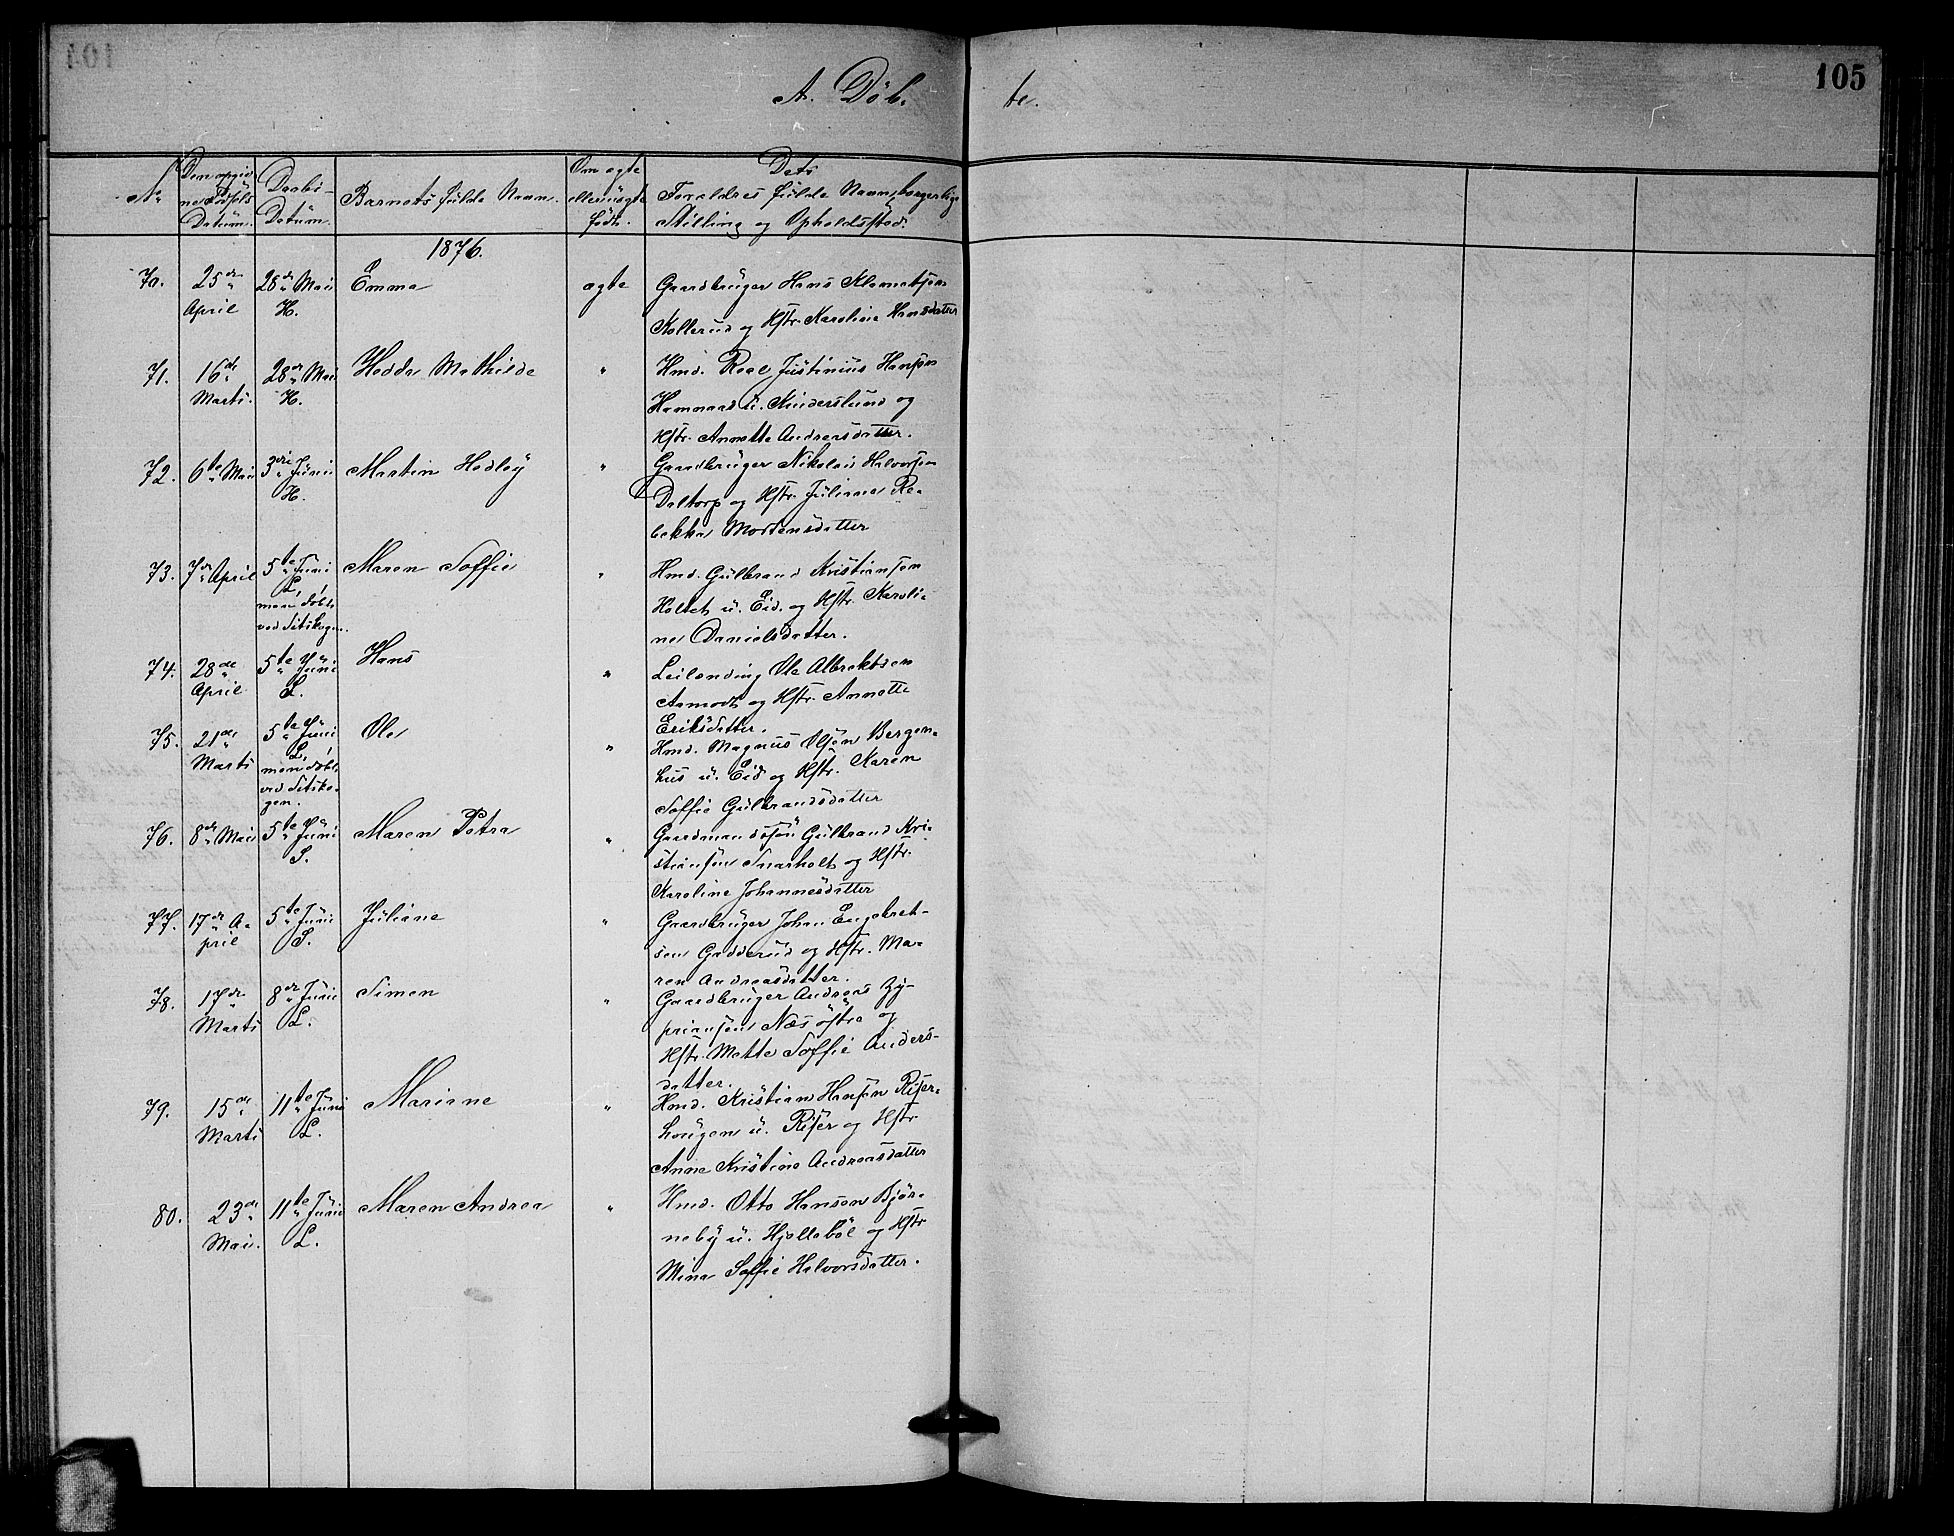 105
A. Döb- te.
No
Den opgiv-
ne Födsels
Datum.
Daabs-
Datum.
Barnets fulde Navn.
Om ægte
eller uægte
født.
Dets
Forældres fulde Navn, borgerlige
Stilling og Opholdssted.
1876.
70. 25de April 28de Mai H. Emma ægte Gaardbruger Hans Klemetsen
Kollerud og Hstr. Karoline Hansdatter
71. 16de Marts. 28de Mai H. Hedda Mathilde " Hmd. Roal Justinius Hansen
Hammas u. Kinderslund og
Hstr. Annette Andreasdatter.
72. 6te Mai 3die Juni H. Martin Hedley " Gaardbruger Nikolai Halvorsen
Daltorp og Hstr. Juliane Re-
bekka Mortensdatter
73. 7de April 5te Juni L, men døbt ved Setskogen. Maren Soffie " Hmd. Gulbrand Kristiansen
Holtet u. Eid. og Hstr. Karoli-
ne Danielsdatter.
74. 28de April 5te Juni L. Hans " Leilending Ole Albrektsen
Aamodt og Hstr. Annette
Eriksdatter.
75. 21de Marts 5te Juni L, men døbt ved Setsko-
gen. Ole " Hmd. Magnus Olsen Bergen-
hus u. Eid og Hstr. Karen
Soffie Gulbrandsdatter
76. 8de Mai 5te Juni S. Maren Petra " Gaardmandssøn Gulbrand Kri-
stiansen Snarholt og Hstr.
Karoline Johannesdatter
77. 17de A-
pril 5te Juni S. Juliane " Gaardbruger Johan Engebret-
sen Gadderud og Hstr. Ma-
ren Andreasdatter.
78. 17de Marts 8de Juni L. Simen " Gaardbruger Andreas Zy-
priansen Næs østre og
Hstr. Mette Soffie Anders-
datter.
79. 15de Marts 11te Juni L. Mariane " Hmd. Kristian Hansen Riser-
hougen u. Riser og Hstr.
Anne Kristine Andreasdatter
80. 23de Mai. 11te Juni L. Maren Andrea " Hmd. Otto Hansen Bjør-
neby u. Hjellebøl og Hstr.
Mina Soffie Halvorsdatter.